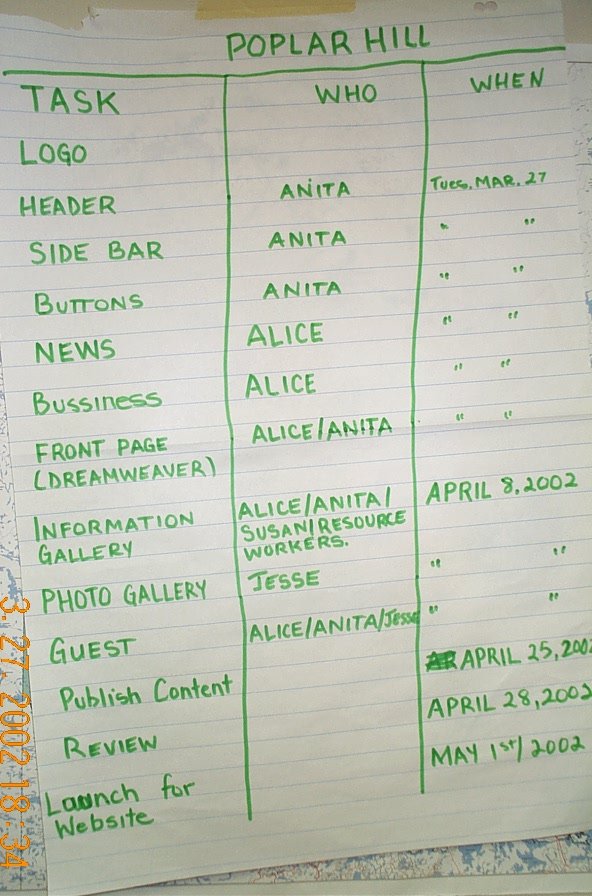 POPLAR HILL
TASK WHO WHEN
LOGO
HEADER ANITA Tues. MAR. 27
SIDE BAR ANITA " "
BUTTONS ANITA " "
NEWS ALICE " "
Bussiness ALICE " "
FRONT PAGE ALICE/ANITA " "
(DREAMWEAVER)
INFORMATION ALICE/ANITA/ APRIL 8, 2002
GALLERY SUSAN/RESOURCE
WORKERS.
PHOTO GALLERY JESSE " "
GUEST ALICE/ANITA/Jesse " "
Publish Content APRIL 25, 2002
REVIEW APRIL 28, 2002
Launch for MAY 1st/2002
Website
3.27.2002 18:34